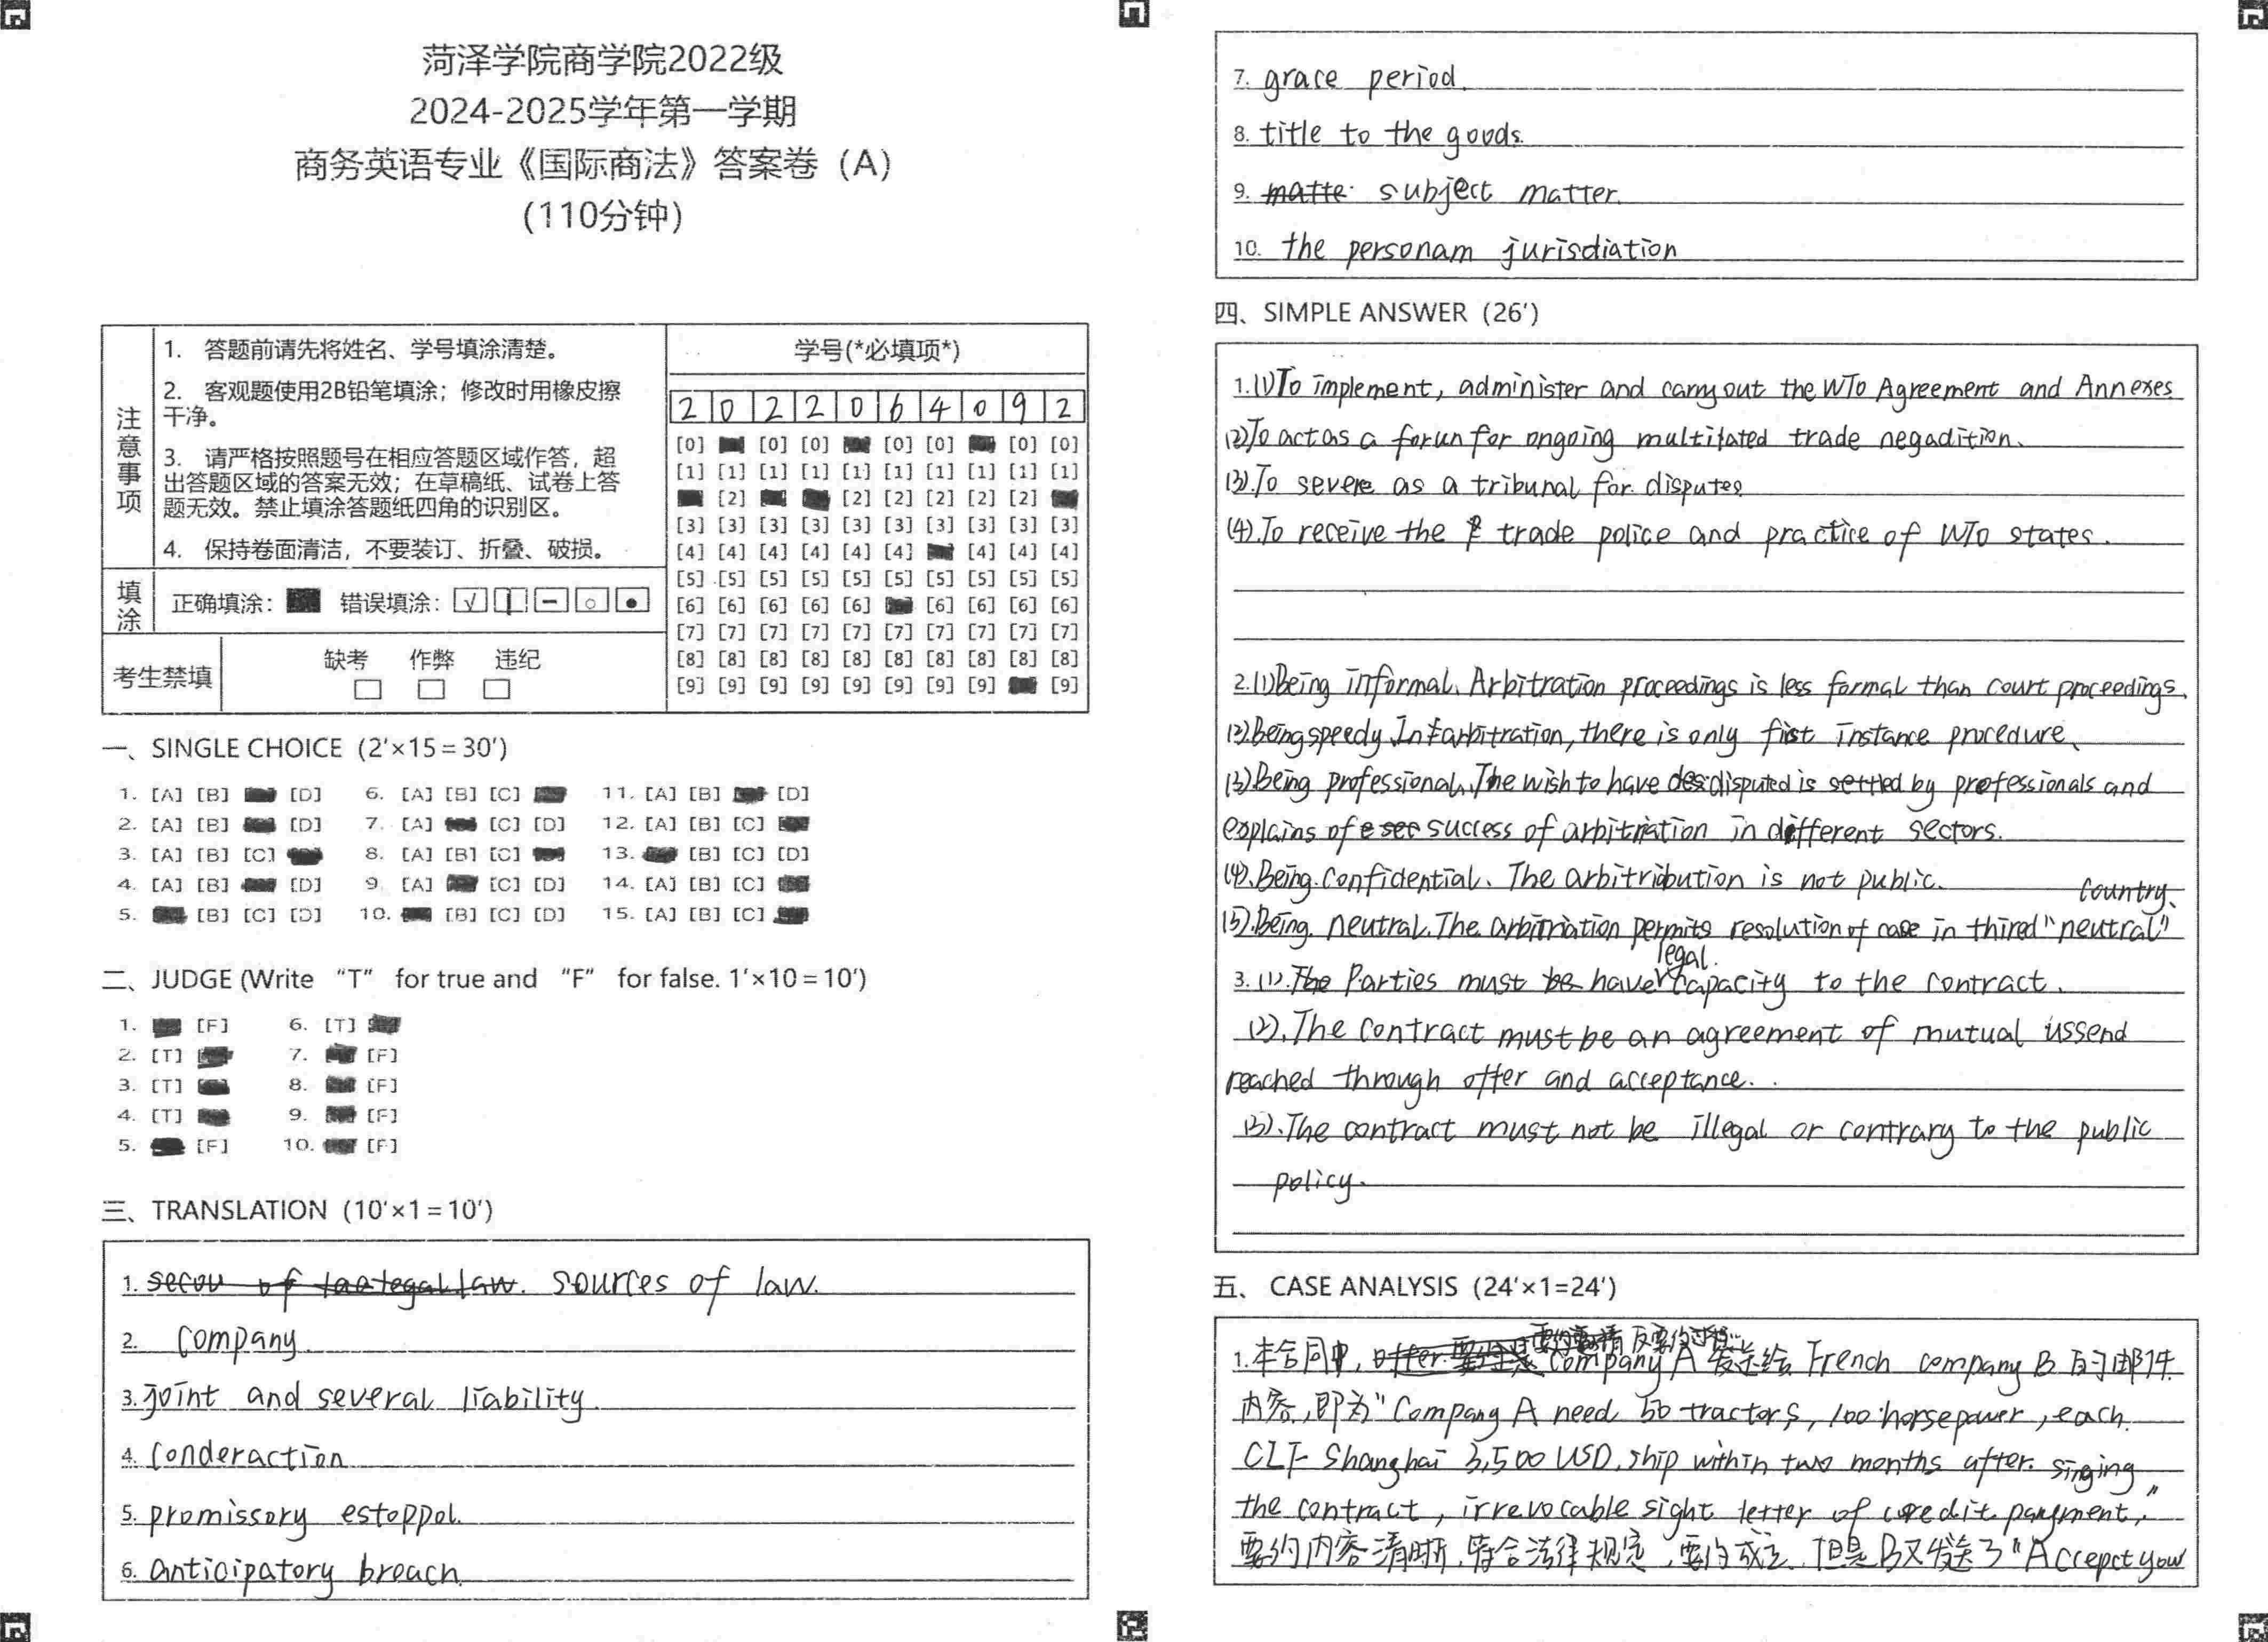 菏泽学院商学院2022级
2024-2025学年第一学期
商务英语专业《国际商法》答案卷（A）
（110分钟）
注意事项
1. 答题前请先将姓名、学号填涂清楚。
2. 客观题使用2B铅笔填涂；修改时用橡皮擦
干净。
3. 请严格按照题号在相应答题区域作答，超
出答题区域的答案无效；在草稿纸、试卷上答
题无效。禁止填涂答题纸四角的识别区。
4. 保持卷面清洁，不要装订、折叠、破损。
填涂
正确填涂： 错误填涂：
考生禁填
缺考 作弊 违纪
学号(*必填项*)
2 0 2 2 0 6 4 0 9 2
[0] [0] [0] [0] [0] [0] [0]
[1] [1] [1] [1] [1] [1] [1] [1] [1] [1]
[2] [2] [2] [2] [2] [2]
[3] [3] [3] [3] [3] [3] [3] [3] [3] [3]
[4] [4] [4] [4] [4] [4] [4] [4] [4]
[5] [5] [5] [5] [5] [5] [5] [5] [5] [5]
[6] [6] [6] [6] [6] [6] [6] [6] [6]
[7] [7] [7] [7] [7] [7] [7] [7] [7] [7]
[8] [8] [8] [8] [8] [8] [8] [8] [8] [8]
[9] [9] [9] [9] [9] [9] [9] [9] [9]
一、SINGLE CHOICE（2′×15＝30′）
1. [A] [B] [D] 6. [A] [B] [C] 11. [A] [B] [D]
2. [A] [B] [D] 7. [A] [C] [D] 12. [A] [B] [C]
3. [A] [B] [C] 8. [A] [B] [C] 13. [B] [C] [D]
4. [A] [B] [D] 9. [A] [C] [D] 14. [A] [B] [C]
5. [B] [C] [D] 10. [B] [C] [D] 15. [A] [B] [C]
二、JUDGE (Write “T” for true and “F” for false. 1′×10＝10′)
1. [F] 6. [T]
2. [T] 7. [F]
3. [T] 8. [F]
4. [T] 9. [F]
5. [F] 10. [F]
三、TRANSLATION（10′×1＝10′）
1. sources of law.
2. Company
3. joint and several liability
4. Conderaction
5. promissory estoppol.
6. anticipatory breach.
7. grace period.
8. title to the goods.
9. matte subject matter
10. the personam jurisdiation
四、SIMPLE ANSWER（26′）
1.(1)To implement, administer and carry out the WTO Agreement and Annexes
(2)To act as a forun for ongoing multilated trade negadition.
(3).To severe as a tribunal for disputes
(4).To receive the trade police and practice of WTO states.
2.(1)Being informal. Arbitration proceedings is less formal than court proceedings.
(2).Being speedy. In arbitration, there is only fist instance procedure.
(3).Being professional. The wish to have disputed is settled by professionals and
explains of success of arbitration in different sectors.
(4).Being. Confidential. The arbitribution is not public.
(5).Being. neutral. The arbitriation permits resolution of case in thired "neutral" country.
3. (1). Parties must have legal capacity to the contract.
(2). The contract must be an agreement of mutual ussend
reached through offer and acceptance.
(3). The contract must not be illegal or contrary to the public
policy.
五、CASE ANALYSIS（24′×1=24′）
1.本合同中, Company A 发送给 French company B 的邮件
内容,即为"Company A need 50 tractors, 100 horsepower, each
CIF Shanghai 3,500 USD, ship within two months after singing
the contract, irrevocable sight letter of credit payment,"
要约内容清晰,符合法律规定,要约成立.但是B又发送了"Accepct your